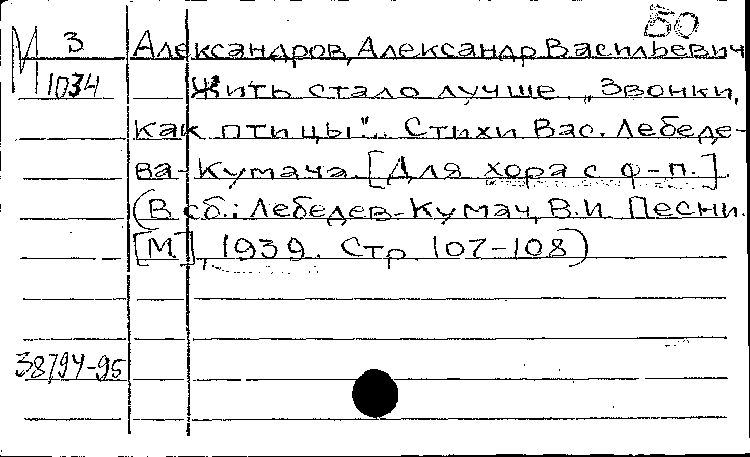 50
М 3 Александров, Александр Васильевич
1034 Жить стало лучше. „Звонки,
как птицы"... Стихи Вас. Лебеде-
ва-Кумача. [Для хора с ф-п.]
(В сб.: Лебедев-Кумач, В.И. Песни.
[М], 1939. Стр. 107-108)
38794-95